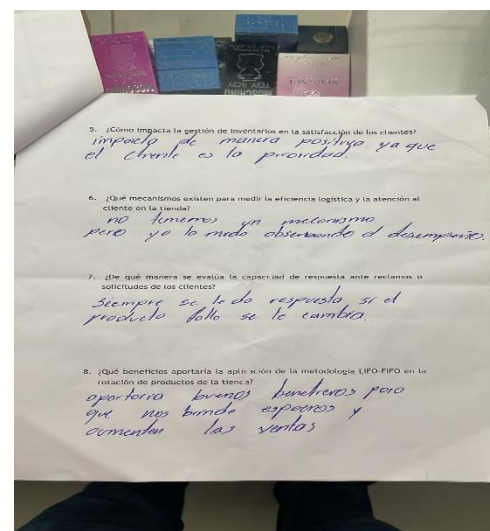 MOSCHINO
TOY BOY
5. ¿Cómo impacta la gestión de inventarios en la satisfacción de los clientes?
impacta de manera positiva ya que
el cliente es la prioridad.
6. ¿Qué mecanismos existen para medir la eficiencia logística y la atención al
cliente en la tienda?
no tenemos un mecanismo
pero yo lo mido observando el desempeño.
7. ¿De qué manera se evalúa la capacidad de respuesta ante reclamos o
solicitudes de los clientes?
Siempre se le da respuesta si el
producto falla se le cambia.
8. ¿Qué beneficios aportaría la aplicación de la metodología LIFO-FIFO en la
rotación de productos de la tienda?
aportaria buenos beneficios para
que nos brinde espacios y
aumenten las ventas